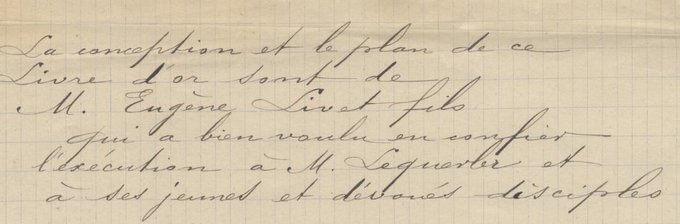 La conception et le plan de ce
Livre d'or sont de
M. Eugène Livet fils
qui a bien voulu en confier
l'éxécution à M. Lequerler et
à ses jeunes et dévoués disciples